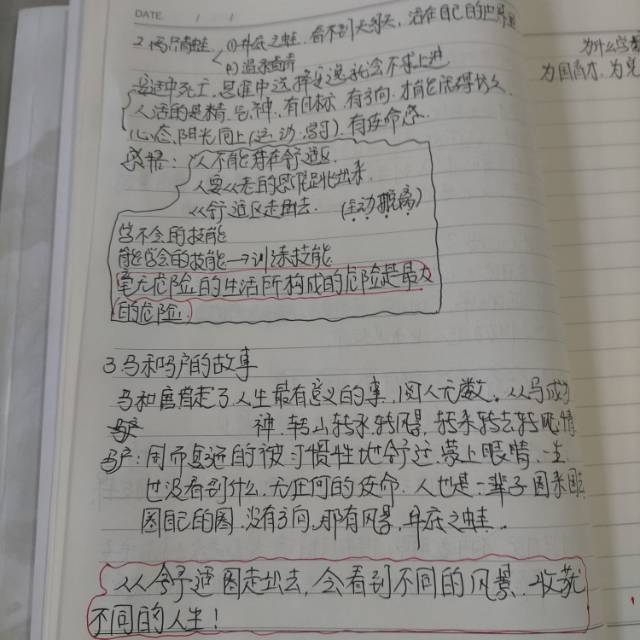 DATE / /
2. 两只青蛙 (1) 井底之蛙 看不到大多大, 活在自己的世界里
(2) 温水青蛙
安逸中死亡 思维中选择安逸就会不求上进
人活的是精气神 有目标 有方向 才能活得长久
心态阳光向上(运动 学习) 有使命感
感悟: 人不能存在舒适区
人要从老的思维跳出来
从舒适区走出去 (主动脱离)
学不会的技能
能学会的技能→训练技能
毫无危险的生活所构成的危险是最大
的危险
3 马和驴的故事
马和唐僧走了人生最有意义的事 阅人无数 从马成为
神 转山转水转风景 转来转去转心情
驴: 用布 的被习惯性地舒适 蒙上眼睛 一生
也没看到什么 无任何的使命 人也是一辈子圈来圈
圈自己的圈 没有方向 那有风景 井底之蛙.
从舒适圈走出去, 会看到不同的风景 收获
不同的人生!
为什么学
为国商才, 为